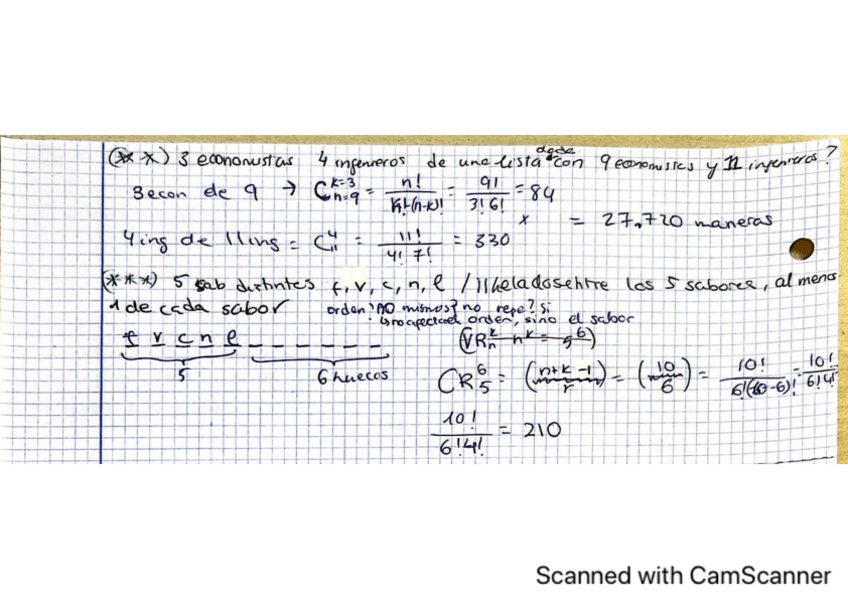 (**) 3 economistas 4 ingenieros de una lista dada con 9 economistas y 11 ingenieros?
3 econ de 9 → C k=3 n=9 = n! / k!·(n-k)! = 9! / 3! 6! = 84
x = 27,720 maneras
4 ing de 11 ing = C 4 11 = 11! / 4! 7! = 330
(***) 5 sab distintos f, v, c, n, l / 11 helados entre los 5 sabores, al menos
1 de cada sabor orden? NO mismos? no repe? Si
no afecta el orden, sino el sabor
f v c n l _ _ _ _ _ _ (VR k n n^k = 5^6)
5 6 huecos
CR 6 5 = (n+k-1 / r) = (10 / 6) = 10! / 6!(10-6)! = 10! / 6! 4!
10! / 6! 4! = 210
Scanned with CamScanner